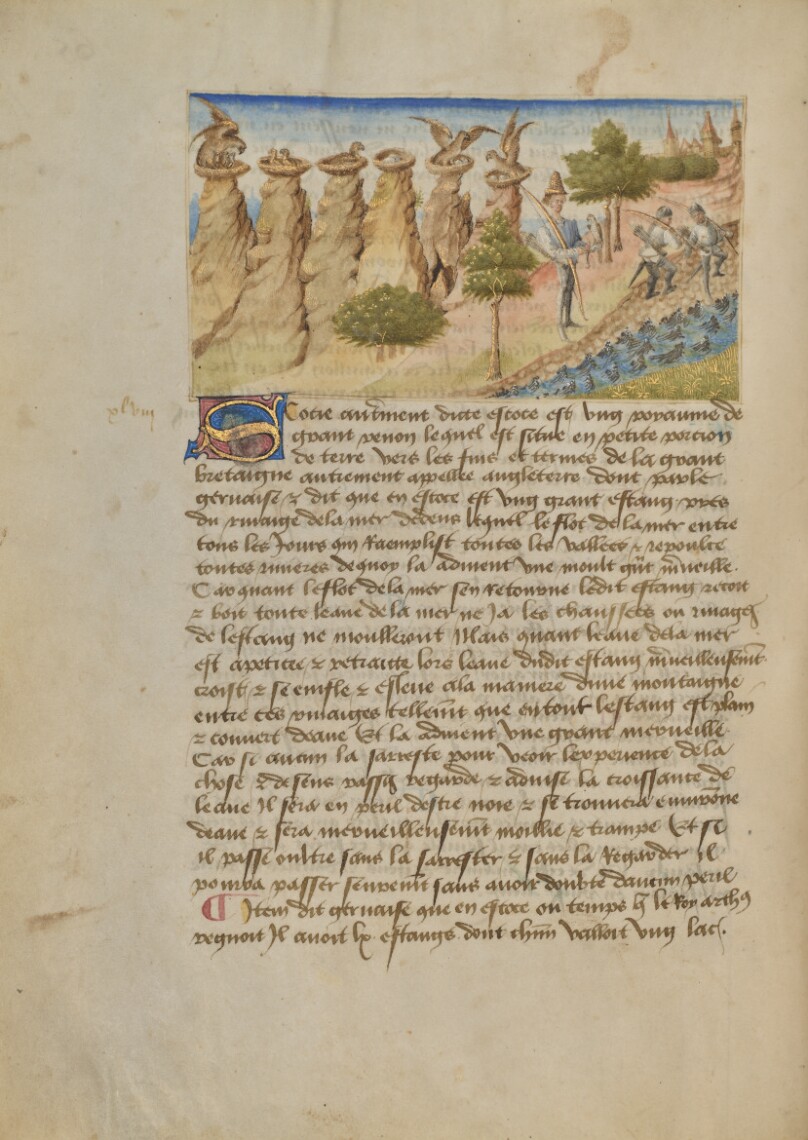 xlviij
Scotie autrement dicte escoce est vng royaume de
grant renon lequel est situe en petite porcion
de terre vers les fins et termes de la grant
bretaigne autrement appellee angleterre dont parle
geruaise & dit que en escoce est vng grant estang pres
du riuaige de la mer dedens lequel le flot de la mer entre
tous les Jours qui Raemplist toutes les vallees & repoulce
toutes riuieres de quoy la aduient vne moult gnt mueille.
Car quant le flot de la mer sen retourne ledit estang recoit
& boit toute leaue de la mer ne Ja les chaussees ou riuages
de lestang ne moulleront Mais quant leaue de la mer
est apeticee & retraicte lors leaue dudit estang mueilleusemt
croist & se enfle & esleue a la maniere dune montaigne
entre ces riuaiges tellemt que en tout lestang est plain
& couuert deaue Et la aduient vne grant merueille
Car se aucun la sarreste pour veoir lexperience de la
chose & de sens rassis regarde & aduise la croissance de
leaue Il sera en peril destre noie & se trouuera enuirone
deaue & sera merueilleusemt moillie & trampe Et se
il passe oultre sans la sarrester & sans la Regarder il
pourra passer seuremt sans auoir doubte daucun peril
Item dit geruaise que en escoce ou temps q le Roy arthus
regnoit Il auoit lx. estangs dont chun valloit vng lac.